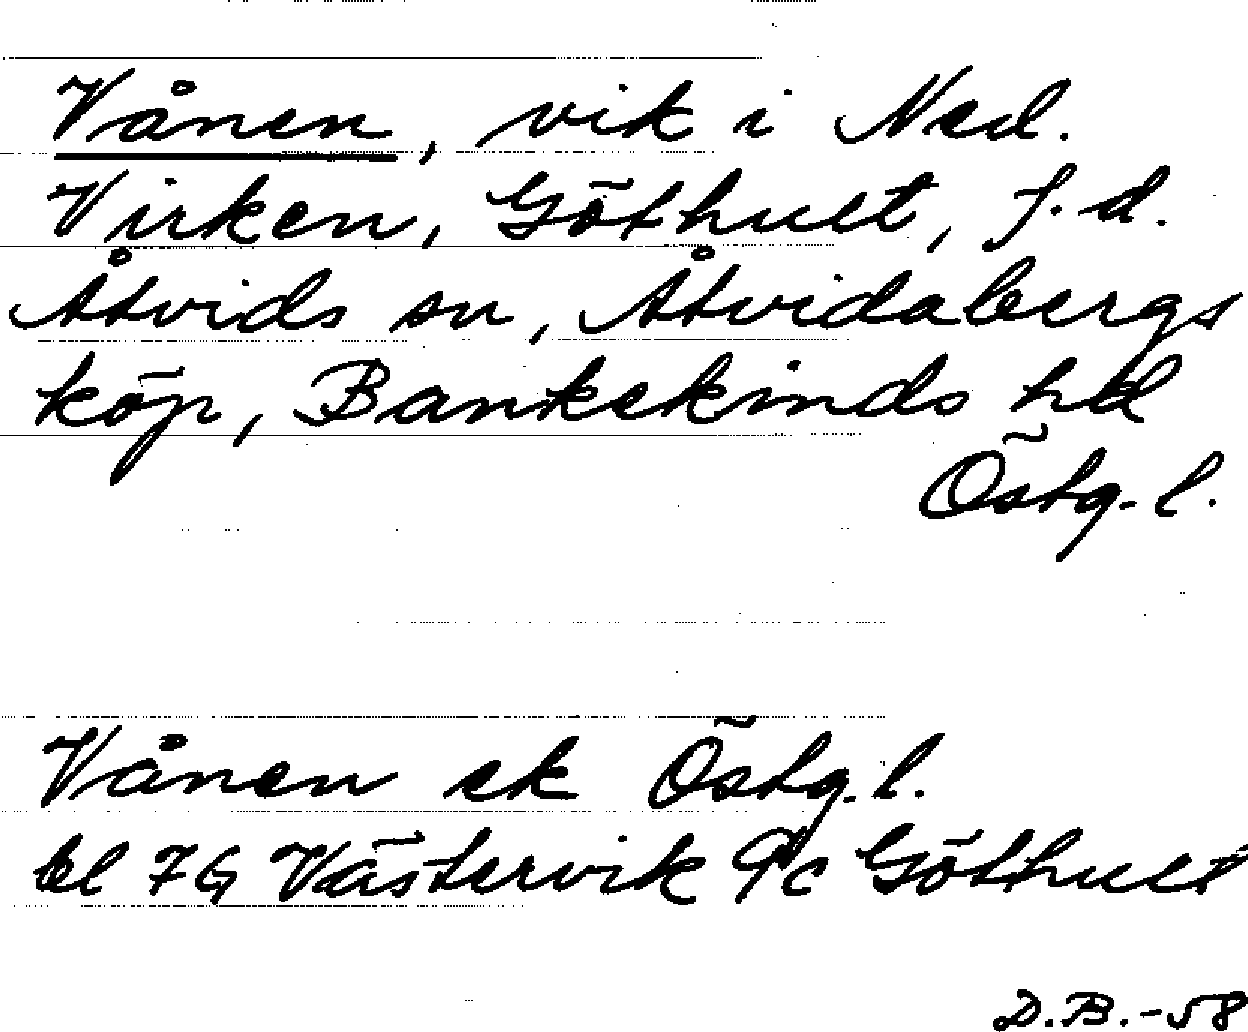 Vånen, vik i Ned.
Virken, Göthult, f.d.
Åtvids sn, Åtvidabergs
köp, Bankekinds hd
Östg. l.
Vånen ek Östg. l.
bl 7G Västervik 9c Göthult
D.B.-58